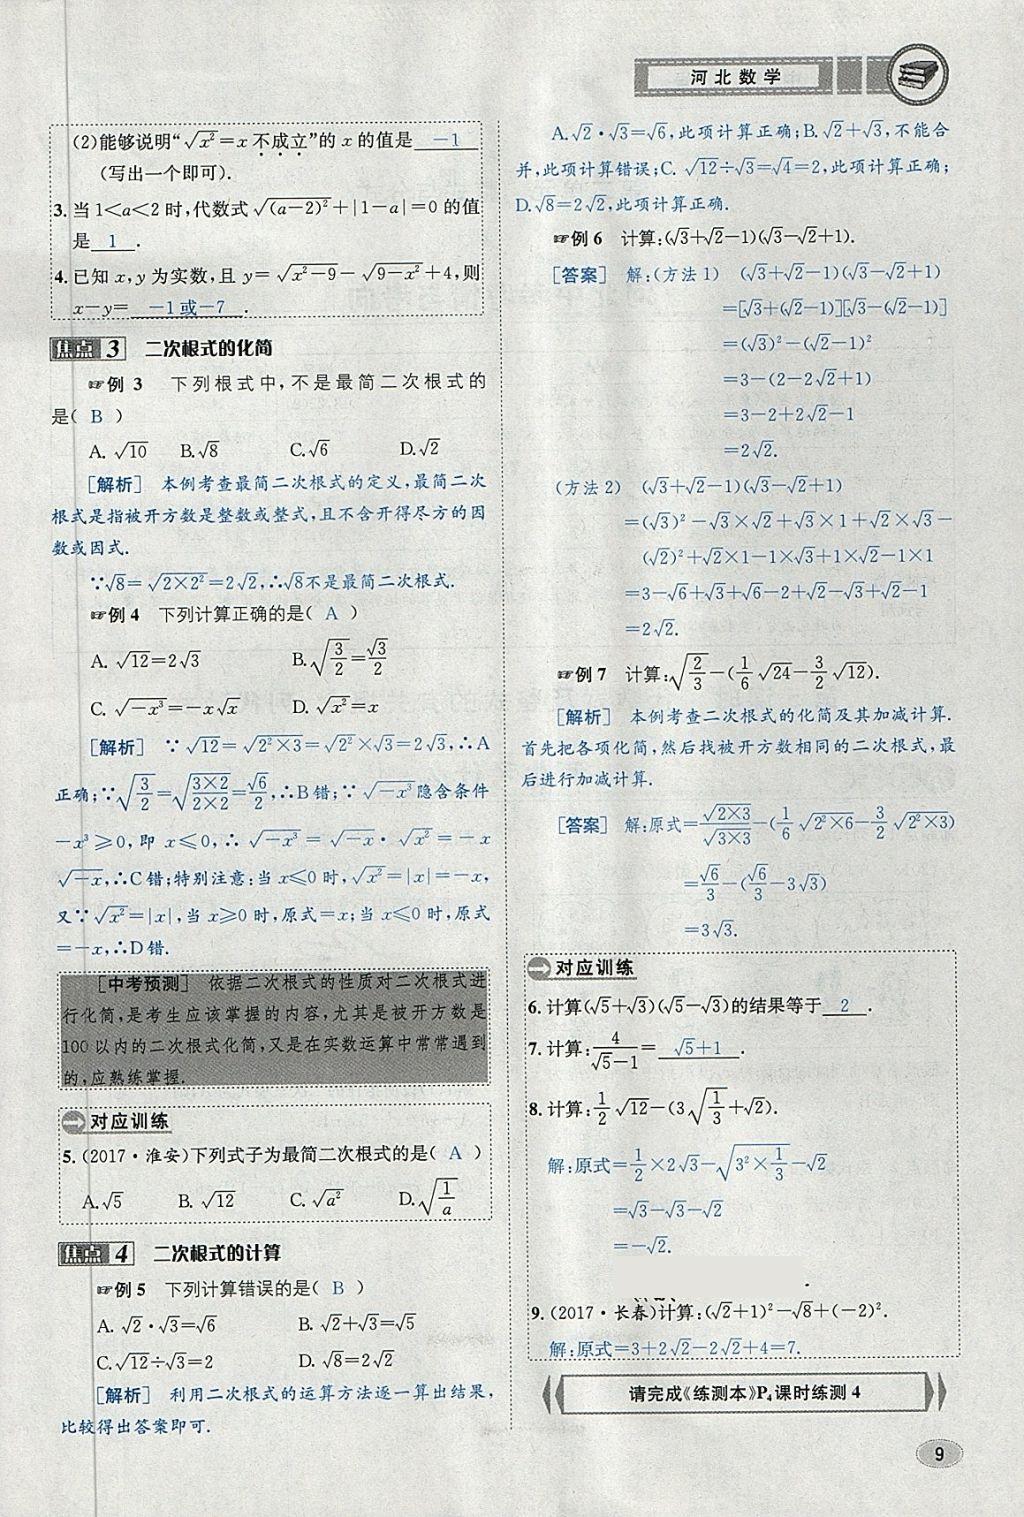 河北数学
(2)能够说明“√x²=x不成立”的x的值是 -1
(写出一个即可).
3. 当1<a<2时,代数式√(a-2)²+|1-a|=0的值
是 1 .
4. 已知x,y为实数,且y=√x²-9-√9-x²+4,则
x-y= -1或-7 .
焦点3 二次根式的化简
☞例3 下列根式中,不是最简二次根式的
是( B )
A. √10 B.√8 C.√6 D.√2
[解析] 本例考查最简二次根式的定义,最简二次
根式是指被开方数是整数或整式,且不含开得尽方的因
数或因式.
∵√8=√2×2²=2√2,∴√8不是最简二次根式.
☞例4 下列计算正确的是( A )
A. √12=2√3 B.√(3/2)=√3/2
C. √-x³=-x√x D. √x²=x
[解析] ∵√12=√2²×3=√2²×√3=2√3,∴A
正确;∵√(3/2)=√(3×2/2×2)=√6/2,∴B错;∵√-x³隐含条件
-x³≥0,即x≤0,∴√-x³=√-x·√x²=-x
√-x,∴C错;特别注意:当x≤0时,√x²=|x|=-x,
又∵√x²=|x|,当x≥0时,原式=x;当x≤0时,原式
=-x,∴D错.
[中考预测] 依据二次根式的性质对二次根式进
行化简,是考生应该掌握的内容,尤其是被开方数是
100以内的二次根式化简,又是在实数运算中常常遇到
的,应熟练掌握.
对应训练
5. (2017·淮安)下列式子为最简二次根式的是( A )
A.√5 B. √12 C. √a² D.√(1/a)
焦点4 二次根式的计算
☞例5 下列计算错误的是( B )
A. √2·√3=√6 B. √2+√3=√5
C.√12÷√3=2 D. √8=2√2
[解析] 利用二次根式的运算方法逐一算出结果,
比较得出答案即可.
A.√2·√3=√6,此项计算正确;B.√2+√3,不能合
并,此项计算错误;C. √12÷√3=√4=2,此项计算正确;
D.√8=2√2,此项计算正确.
☞例6 计算:(√3+√2-1)(√3-√2+1).
[答案] 解:(方法1) (√3+√2-1)(√3-√2+1)
=[√3+(√2-1)][√3-(√2-1)]
=(√3)²-(√2-1)²
=3-(2-2√2+1)
=3-2+2√2-1
=2√2.
(方法2) (√3+√2-1)(√3-√2+1)
=(√3)²-√3×√2+√3×1+√2×√3-
(√2)²+√2×1-1×√3+1×√2-1×1
=3-√6+√3+√6-2+√2-√3+√2-1
=2√2.
☞例7 计算:√(2/3)-(1/6 √24-3/2 √12).
[解析] 本例考查二次根式的化简及其加减计算.
首先把各项化简,然后找被开方数相同的二次根式,最
后进行加减计算.
[答案] 解:原式=√2×3/√3×3-(1/6 √2²×6-3/2 √2²×3)
=√6/3-(√6/3-3√3)
=3√3.
对应训练
6. 计算(√5+√3)(√5-√3)的结果等于 2 .
7. 计算:4/(√5-1)= √5+1 .
8. 计算:1/2 √12-(3√(1/3)+√2).
解:原式=1/2×2√3-√(3²×1/3)-√2
=√3-√3-√2
=-√2.
9. (2017·长春)计算:(√2+1)²-√8+(-2)².
解:原式=3+2√2-2√2+4=7.
请完成《练测本》P₄课时练测4
9